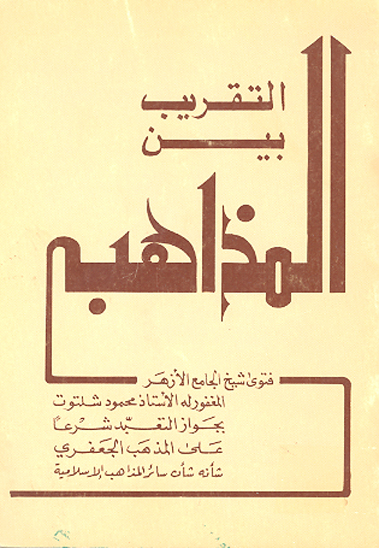 التقريب
بين
المذاهب
فتوى شيخ الجامع الأزهر
المغفور له الأستاذ محمود شلتوت
بجواز التعبّد شرعاً
على المذهب الجعفري
شأنه شأن سائر المذاهب الإسلامية